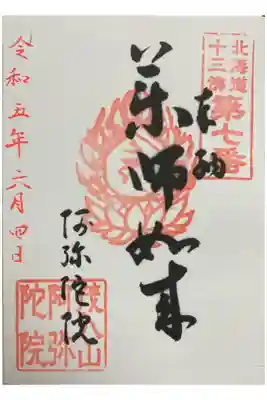 北海道
十三佛
第七番
奉納
薬師如来
阿弥陀院
令和五年六月四日
阿弥
陀院